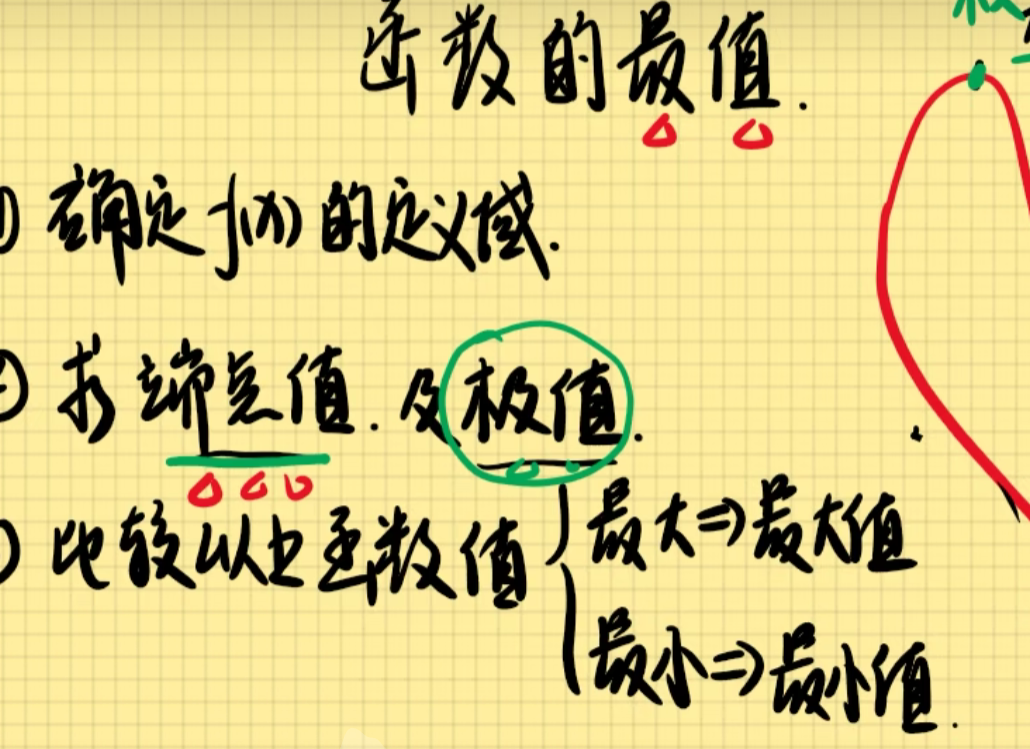 函数的最值.
① 确定f(x)的定义域.
② 求端点值.及极值.
比较以上函数值 { 最大⇒最大值
最小⇒最小值.